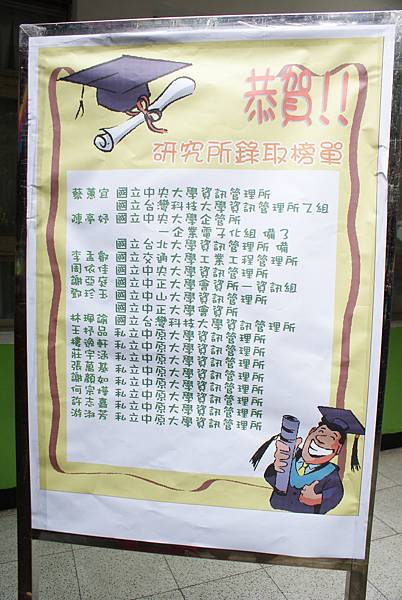 恭賀!!
研究所錄取榜單
蔡蕙宜 國立中央大學資訊管理所
國立台灣科技大學資訊管理所乙組
陳亭妤 國立中央大學企管所
—企業電子化組 備3
國立台北大學資訊管理所 備
李孟叡 國立交通大學工業工程管理所
周依佳 國立中央大學資訊管理所
謝亞庭 國立中正大學會資所—資訊組
鄭珍玉 國立中山大學資訊管理所
國立中正大學資訊管理所
林琤諭 國立台灣科技大學資訊管理所
王抒品 私立中原大學資訊管理所
樓逸軒 私立中原大學資訊管理所
莊宇涵 私立中原大學資訊管理所
張萬基 私立中原大學資訊管理所
謝顏如 私立中原大學資訊管理所
何宗燁 私立中原大學資訊管理所
許志嘉 私立中原大學資訊管理所
游淑芳 私立中原大學資訊管理所